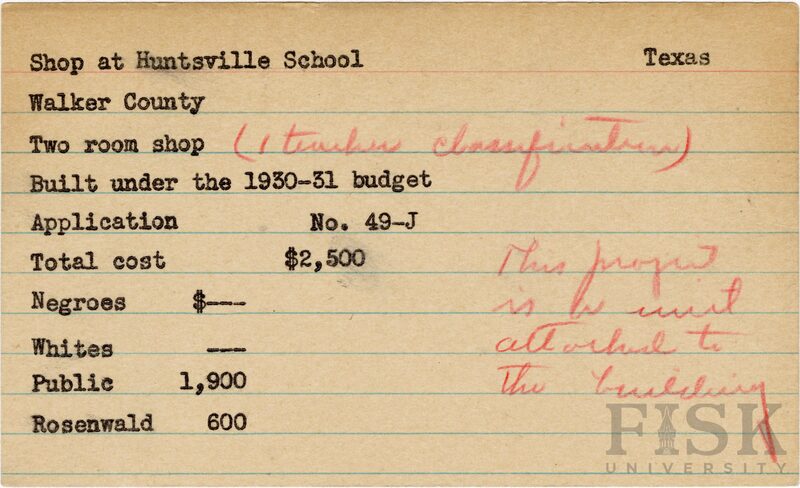 Shop at Huntsville School Texas
Walker County
Two room shop (1 teacher classification)
Built under the 1930-31 budget
Application No. 49-J
Total cost $2,500
This project
is a unit
attached to
the building
Negroes $---
Whites ---
Public 1,900
Rosenwald 600
FISK
UNIVERSITY